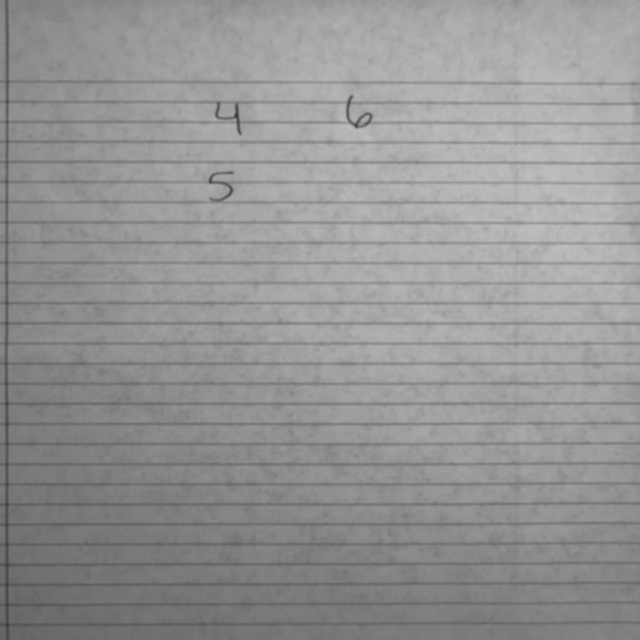 4 6
5